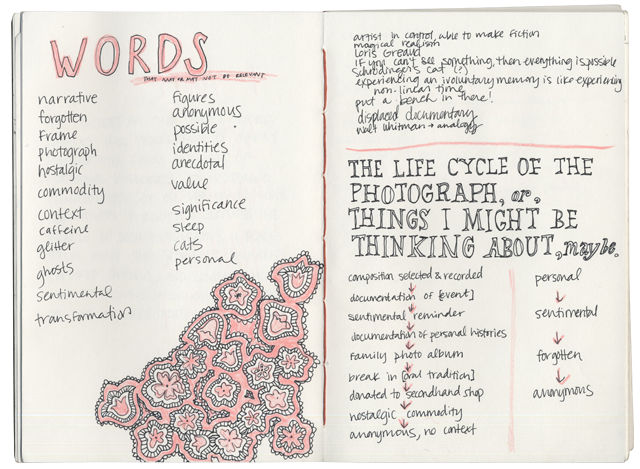 WORDS
THAT MAY OR MAY NOT BE RELEVANT
narrative
forgotten
Frame
photograph
nostalgic
commodity
context
caffeine
glitter
ghosts
sentimental
transformation
figures
anonymous
possible
identities
anecdotal
value
significance
sleep
cats
personal
artist in control, able to make fiction
magical realism
Loris Greaud
IF you can't see something, then everything is possible
Schrodinger's Cat (?)
experiencing an involuntary memory is like experiencing
non-linear time
put a bench in there!
displaced documentary
Walt Whitman → analogy
THE LIFE CYCLE OF THE
PHOTOGRAPH, or,
THINGS I MIGHT BE
THINKING ABOUT, maybe.
composition selected & recorded
documentation of [event]
sentimental reminder
documentation of personal histories
family photo album
break in [oral tradition]
donated to secondhand shop
nostalgic commodity
anonymous, no context
personal
sentimental
forgotten
anonymous